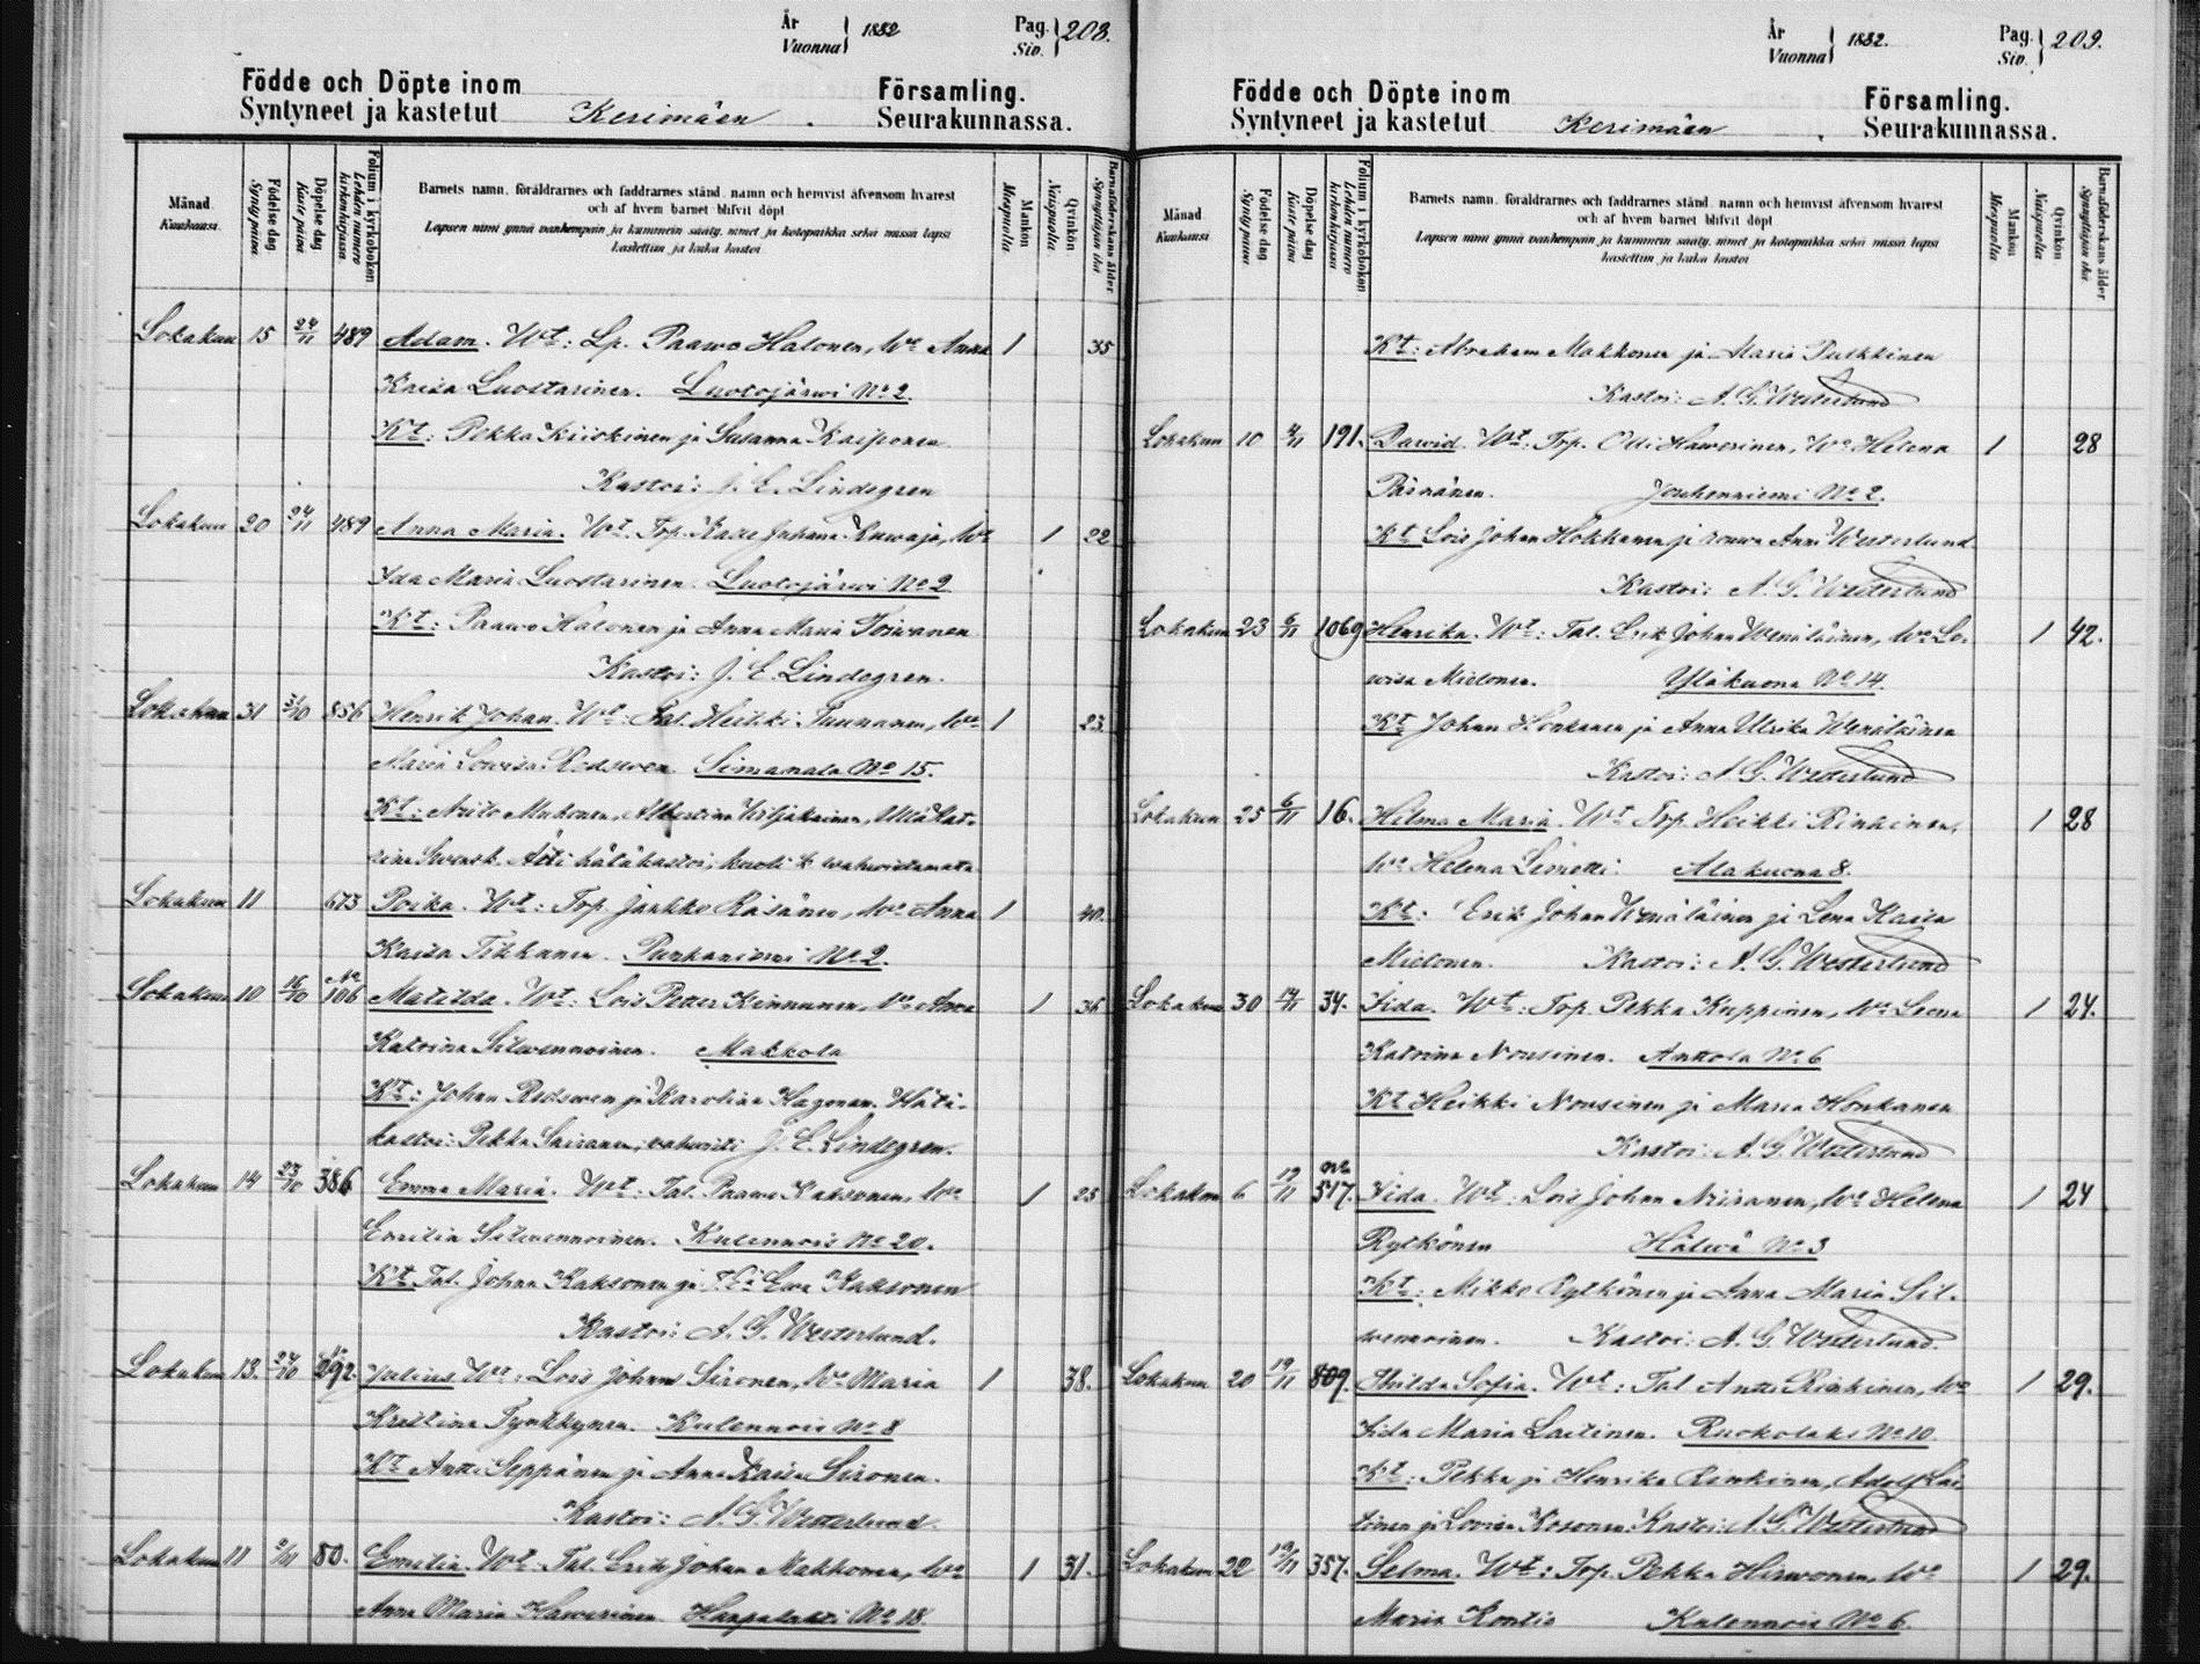 År
Vuonna
1882
Pag.
Siv.
208.
Födde och Döpte inom
Syntyneet ja kastetut Kerimäen
Församling.
Seurakunnassa.
Månad
Kuukausi
Födelse dag
Synty päivä
Döpelse dag
Kaste päivä
Folium i kyrkoboken
Lehden numero kirkonkirjassa
Barnets namn, föräldrarnes och faddrarnes stånd, namn och hemvist äfvensom hvarest
och af hvem barnet blifvit döpt
Lapsen nimi ynnä vanhempain ja kummein sääty, nimet ja kotopaikka sekä missä lapsi
kastettiin ja kuka kastoi
Mankön
Miespuolia
Qvinkön
Naispuolia
Barnaföderskans ålder
Synnyttäjän ikä
Lokakuu 15 24/11 489 Adam. Wt: Lp. Paawo Halonen, Wo Anna 1 35
Kaisa Luostarinen. Luotojärwi No 2.
Kt: Pekka Kiiskinen ja Susanna Kaiponen
Kastoi: J. E. Lindegren
Lokakuu 20 24/11 489 Anna Maria. Wt. Trp. Kalle Juhana Kuwaja, Wo 1 22
Ida Maria Luostarinen. Luotojärwi No 2
Kt: Paawo Halonen ja Anna Maria Toiwanen
Kastoi: J. E. Lindegren.
Lokakuu 31 31/10 856 Henrik Johan. Wt: Tal. Heikki Tuunanen, Wo 1 23
Maria Lowisa Redswen. Simanala No 15.
Kt: Niilo Muhonen, Albertina Wiljakainen, Ulla Kat-
rina Swensk. Äiti hätäkastoi, kuoli k. wahwistamata
Lokakuu 11 673 Poika. Wt: Trp. Jaakko Räisänen, Wo Anna 1 40.
Kaisa Tikkanen. Punkaniemi No 2.
Lokakuu 10 16/10 No 106 Matilda. Wt: Lois Petter Kinnunen, Wo Anna 1 36
Katrina Silwennoinen. Makkola
Kt: Johan Redswen ja Karolina Hagman. Hätä-
kastoi: Pekka Sairanen, wahwisti J. E. Lindegren.
Lokakuu 14 23/10 386 Emma Maria. Wt: Tal. Paawo Kaksonen, Wo 1 25
Emilia Silwennoinen. Kulennois No 20.
Kt Tal. Johan Kaksonen ja Ewa Kaksonen
Kastoi: A. G. Westerlund.
Lokakuu 13. 24/10 292. Julius Wt: Lois Johan Sironen, Wo Maria 1 38.
Kristina Tynkkynen. Kulennois No 8
Kt Antti Seppänen ja Anna Kaisa Sironen.
Kastoi: A. G. Westerlund.
Lokakuu 11 2/11 80. Emilia. Wt. Tal. Erik Johan Makkonen, Wo 1 31.
Anna Maria Hawerinen Haapalahti No 18.
År
Vuonna
1882.
Pag.
Siv.
209.
Födde och Döpte inom
Syntyneet ja kastetut Kerimäen
Församling.
Seurakunnassa.
Månad
Kuukausi
Födelse dag
Synty päivä
Döpelse dag
Kaste päivä
Folium i kyrkoboken
Lehden numero kirkonkirjassa
Barnets namn, föräldrarnes och faddrarnes stånd, namn och hemvist äfvensom hvarest
och af hvem barnet blifvit döpt
Lapsen nimi ynnä vanhempain ja kummein sääty, nimet ja kotopaikka sekä missä lapsi
kastettiin ja kuka kastoi
Mankön
Miespuolia
Qvinkön
Naispuolia
Barnaföderskans ålder
Synnyttäjän ikä
Kt: Abraham Makkonen ja Maria Pulkkinen
Kastoi: A. G. Westerlund
Lokakuu 10 4/11 191. Dawid. Wt. Trp. Olli Hawerinen, Wo Helena 1 28
Päsnänen. Jouhenniemi No 2.
Kt Lois Johan Hokkanen ja rouwa Anni Westerlund
Kastoi: A. G. Westerlund
Lokakuu 23 6/11 1069 Henrika. Wt: Tal. Erik Johan Wenäläinen, Wo Lo- 1 42.
wisa Mielonen. Yläkuona No 14.
Kt Johan Honkanen ja Anna Ulrika Wenäläinen
Kastoi: A. G. Westerlund
Lokakuu 25 6/11 16. Hilma Maria. Wt Trp. Heikki Rinkinen, 1 28
Wo Helena Limatti. Alakuona 8.
Kt: Erik Johan Wenäläinen ja Lena Kaisa
Mielonen. Kastoi: A. G. Westerlund
Lokakuu 30 14/11 34. Iida. Wt: Trp. Pekka Kuppinen, Wo Leena 1 24.
Katrina Nousinen. Anttola No 6
Kt Heikki Nousinen ja Maria Honkanen
Kastoi: A. G. Westerlund
Lokakuu 6 12/11 No 517. Iida. Wt: Lois Johan Niiranen, Wo Helena 1 24
Rytkönen Hälwä No 3
Kt: Mikko Rytkönen ja Anna Maria Sil-
wennoinen. Kastoi: A. G. Westerlund.
Lokakuu 20 19/11 809. Hilda Sofia. Wt: Tal Antti Rinkinen, Wo 1 29.
Iida Maria Laitinen. Ruokolaks No 10
Kt: Pekka ja Henrika Rinkinen, Adolf Lai-
tinen ja Lovisa Kosonen Kastoi: A. G. Westerlund
Lokakuu 22 19/11 357. Selma. Wt: Trp. Pekka Hirwonen, Wo 1 29.
Maria Kontio Kulennois No 6.